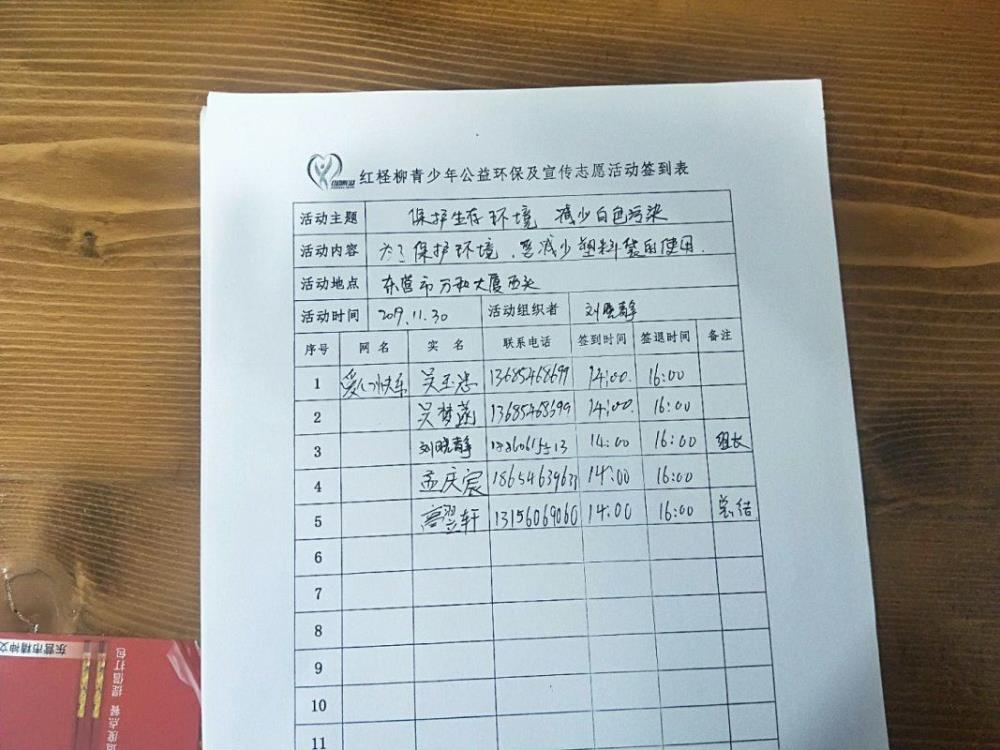 红柽柳青少年公益环保及宣传志愿活动签到表
活动主题 保护生存环境 减少白色污染
活动内容 为了保护环境,要减少塑料袋的使用.
活动地点 东营市万和大厦西头
活动时间 2019.11.30 活动组织者 刘晓静
序号 网名 实名 联系电话 签到时间 签退时间 备注
1 13685468699 14:00. 16:00
2 吴梦菡 13685468699 14:00. 16:00
3 刘晓静 14:00 16:00 组长
4 孟庆宸 14:00 16:00
5 高翌轩 13156069060 14:00 16:00 总结
6
7
8
9
10
11
东营市精神文
适度点餐 提倡打包